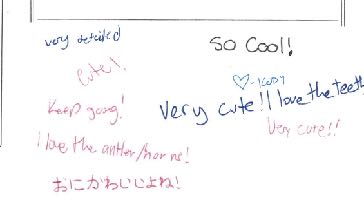 very detailed
so cool!
cute!
Keep going!
very cute!! I love the teeth
Very cute!!
I love the antler/horns!
おにかわいじよね!